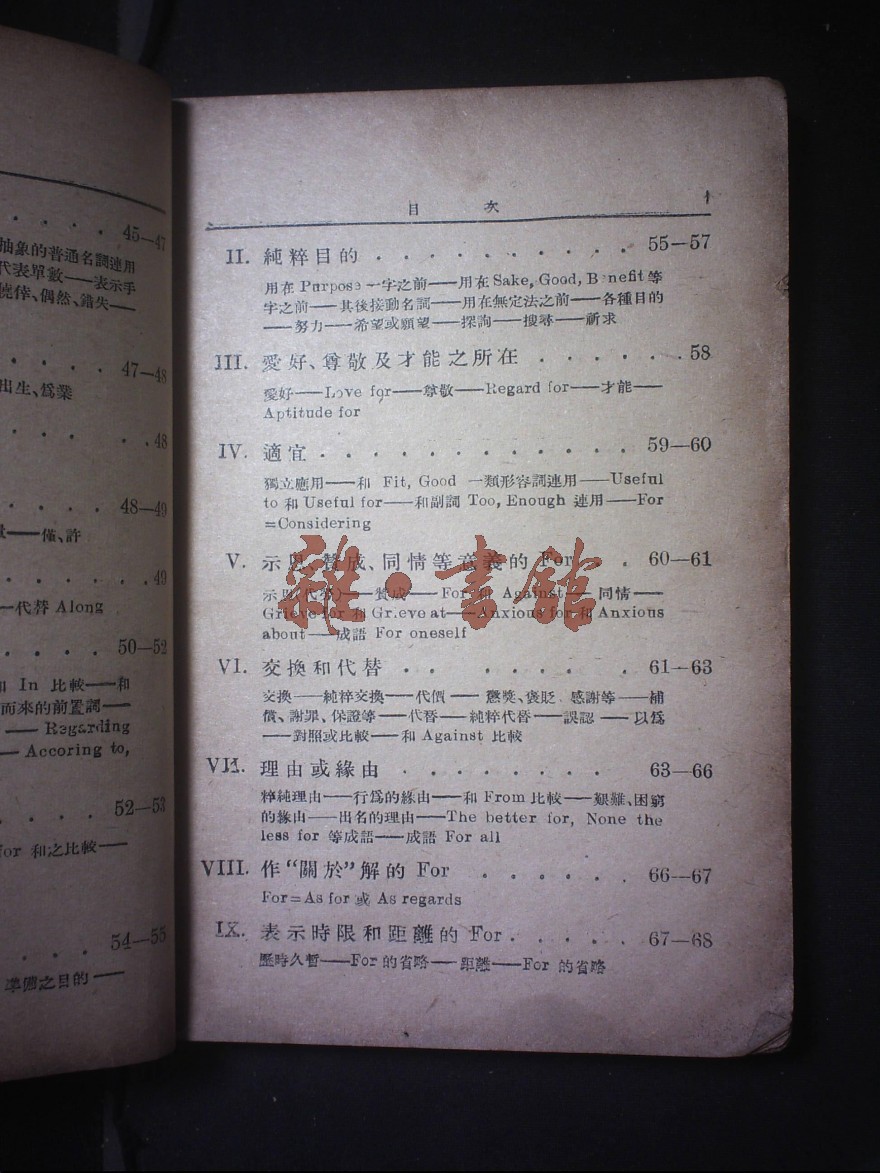 45—47
抽象的普通名詞連用
代表單數——表示手
僥倖、偶然、錯失——
47—48
出生、爲業
48
48—49
——僅、許
49
—代替 Along
50—52
In 比較——和
而來的前置詞——
—— Regarding
—— Accoring to,
52—53
for 和之比較——
54—55
準備之目的——
目 次
II. 純粹目的 . . . . . . . . . . 55—57
用在 Purpose 一字之前——用在 Sake, Good, B nefit 等
字之前——其後接動名詞——用在無定法之前——各種目的
——努力——希望或願望——探詢——搜尋——祈求
III. 愛好、尊敬及才能之所在 . . . . . . 58
愛好——Love for——尊敬——Regard for——才能——
Aptitude for
IV. 適宜 . . . . . . . . . . . . 59—60
獨立應用——和 Fit, Good 一類形容詞連用——Useful
to 和 Useful for——和副詞 Too, Enough 連用——For
=Considering
V. 示恩、贊成、同情等意義的 For . . 60—61
示恩(代勞)——贊成——For 和 Against——同情——
Grieve for 和 Gr.eve at——Anxious for 和 Anxious
about——成語 For oneself
VI. 交換和代替 . . . . . . 61—63
交換——純粹交換——代價——懲獎、褒貶、感謝等——補
償、謝罪、保證等——代替——純粹代替——誤認——以爲
——對照或比較——和 Against 比較
VII. 理由或緣由 . . . . . . . . 63—66
粹純理由——行爲的緣由——和 From 比較——艱難、困窮
的緣由——出名的理由——The better for, None the
less for 等成語——成語 For all
VIII. 作“關於”解的 For . . . . . . 66—67
For=As for 或 As regards
IX. 表示時限和距離的 For . . . . . 67—68
歷時久暫——For 的省略——距離——For 的省略
雜·書館